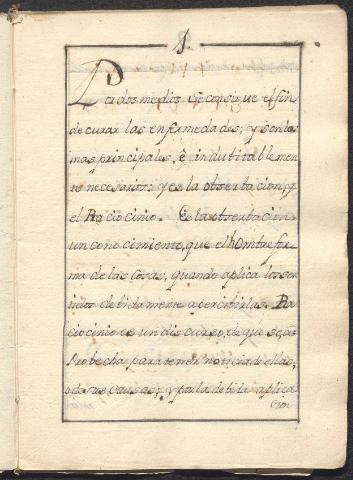 1.
Por dos medios se consigue el fin
de curar las enfermedades, y son los
mas principales, è indubitablemen
te necesarios: y es la obserbacion, y
el Raciocinio. Es la obserbacion
un conocimiento, que el hombre for
ma de las cosas, quando aplica los sen
tidos debidamente a percibirlas. Ra
ciocinio es un discurso, de que se a
probecha, para tener noticia de ellas,
o de sus causas; y por la debida aplica
cion